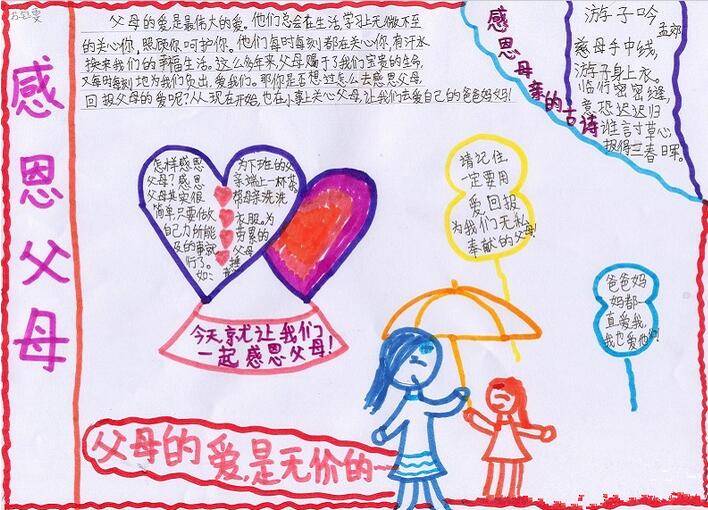 感恩父母
父母的爱是最伟大的爱。他们总会在生活学习上无微不至
的关心你,照顾你呵护你。他们每时每刻都在关心你,有汗水
换来我们的幸福生活。这么多年来,父母赐予了我们宝贵的生命,
又每时每刻地为我们负出,爱我们。那你是否想过怎么去感恩父母,
回报父母的爱呢?从现在开始,也在小事上关心父母,让我们去爱自己的爸爸妈妈!
感恩母亲的古诗
游子吟
孟郊
慈母手中线,
游子身上衣。
临行密密缝,
意恐迟迟归
谁言寸草心
报得三春晖。
怎样感恩
父母?感恩
父母其实很
简单,只要做
自己力所能
及的事就
行了。
如:
为下班的父
亲端上一杯茶。
帮母亲洗洗
衣服。为
劳累的
父母
捶
今天就让我们
一起感恩父母!
请记住
一定要用
爱回报
为我们无私
奉献的父母!
爸爸妈
妈都一
直爱我,
我也爱他们!
父母的爱,是无价的